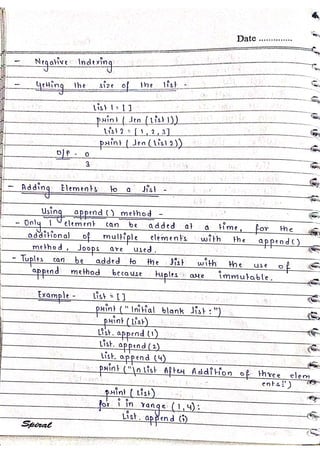 Date ..............
- Negative Indexing
- Getting the size of the list -
list 1 = [ ]
print ( len (list 1))
list 2 = [1, 2, 3]
print ( len (list 2))
O/P - 0
3
- Adding Elements to a list -
Using append() method -
- Only 1 element can be added at a time, for the
additional of multiple elements with the append()
method, loops are used.
- Tuples can be added to the list with the use of
append method because tuples are immutable.
Example - list = [ ]
print ("Initial blank list :")
print (list)
list. append (1)
list. append (2)
list. append (4)
print ("\n list After Addition of three elem
ents:")
print ( list)
for i in range (1,4):
list. append (i)
Spiral